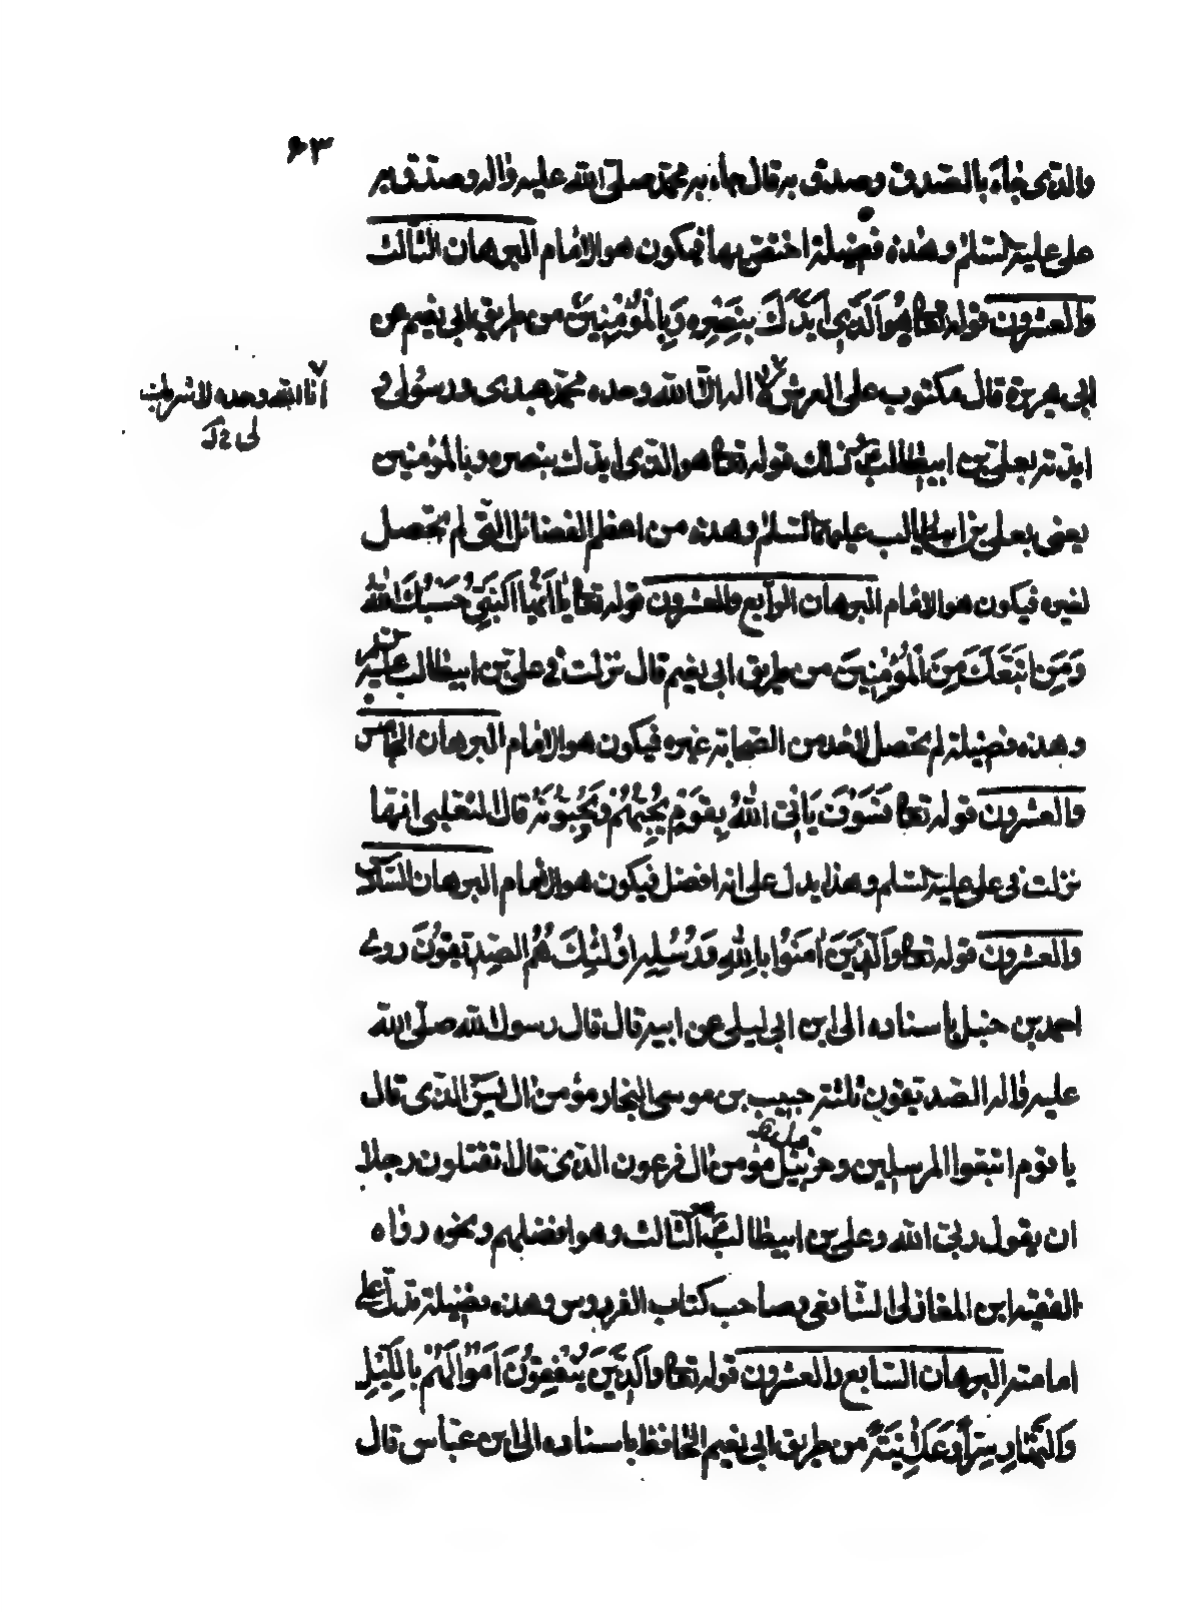 ٦٣
والذی جاء بالصدق وصدق به قال جاء به محمد صلی الله علیه واله وصدق به
علی علیه السلم وهذه فضیلة اختص بها فیکون هو الامام البرهان الثالث
والعشرون قوله تعا هُوَ الَّذی اَیَّدَكَ بِنَصْرِهِ وَبِالْمُؤْمِنینَ من طریق ابی نعیم عن
ابی هریرة قال مکتوب علی العرش لا اله الا الله وحده محمد عبدی ورسولی و
انا الله وحده لا شریک
لی
ایدته بعلی بن ابیطالب ع وذلك قوله تعا هو الذی ایدك بنصره وبالمؤمنین
یعنی بعلی بن ابیطالب علیهما السلم وهذه من اعظم الفضائل التی لم تحصل
لغیره فیکون هو الامام البرهان الرابع والعشرون قوله تعا یا اَیُّهَا النَّبِیُّ حَسْبُكَ اللهُ
وَمَنِ اتَّبَعَكَ مِنَ الْمُؤْمِنینَ من طریق ابی نعیم قال نزلت فی علی بن ابیطالب علیه السلم
وهذه فضیلة لم تحصل لاحد من الصحابة غیره فیکون هو الامام البرهان الخامس
والعشرون قوله تعا فَسَوْفَ یَاْتِی اللهُ بِقَوْمٍ یُحِبُّهُمْ وَیُحِبُّونَهُ قال الثعلبی انها
نزلت فی علی علیه السلم وهذا یدل علی انه افضل فیکون هو الامام البرهان السادس
والعشرون قوله تعا وَالَّذینَ اٰمَنُوا بِاللهِ وَرُسُلِهِ اُولٰئِكَ هُمُ الصِّدّیقُونَ روی
احمد بن حنبل باسناده الی ابن ابی لیلی عن ابیه قال قال رسول الله صلی الله
علیه واله الصدیقون ثلثة حبیب بن موسی النجار مؤمن ال یٰسۤ الذی قال
یا قوم اتبعوا المرسلین وحزبیل مؤمن ال فرعون الذی قال اتقتلون رجلا
ان یقول ربی الله وعلی بن ابیطالب ع الثالث وهو افضلهم ونحوه رواه
الفقیه ابن المغازلی الشافعی وصاحب کتاب الفردوس وهذه فضیلة تدل علی
امامته البرهان السابع والعشرون قوله تعا وَالَّذینَ یُنْفِقُونَ اَمْوَالَهُمْ بِاللَّیْلِ
وَالنَّهَارِ سِرّاً وَعَلَانِیَةً من طریق ابی نعیم الحافظ باسناده الی ابن عباس قال